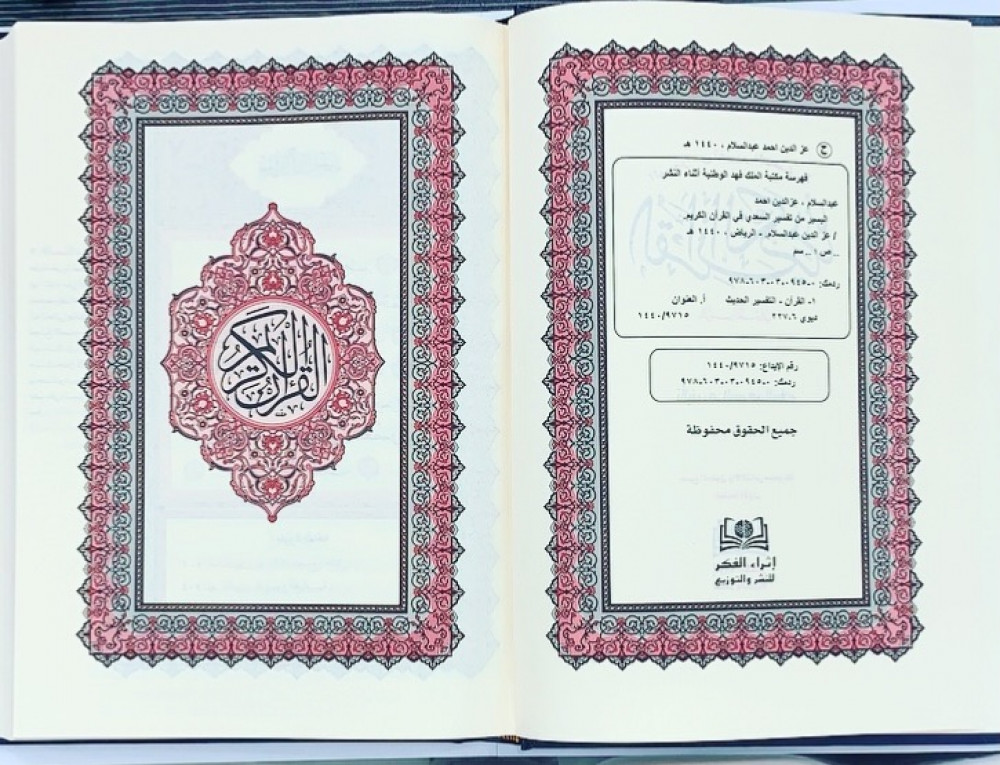 ح عز الدين احمد عبدالسلام ، ١٤٤٠ هـ
فهرسة مكتبة الملك فهد الوطنية أثناء النشر
عبدالسلام ، عزالدين احمد
اليسير من تفسير السعدي في القرآن الكريم.
/ عز الدين عبدالسلام .- الرياض ، ١٤٤٠ هـ
..ص ١ ..سم
ردمك: ٠-٠٩٤٥-٠٣-٦٠٣-٩٧٨
١- القرآن - التفسير الحديث أ. العنوان
ديوي ٢٢٧،٦ ١٤٤٠/٩٧١٥
رقم الإيداع: ١٤٤٠/٩٧١٥
ردمك: ٠-٠٩٤٥-٠٣-٦٠٣-٩٧٨
جميع الحقوق محفوظة
إثراء الفكر
للنشر والتوزيع
القرآن الكريم